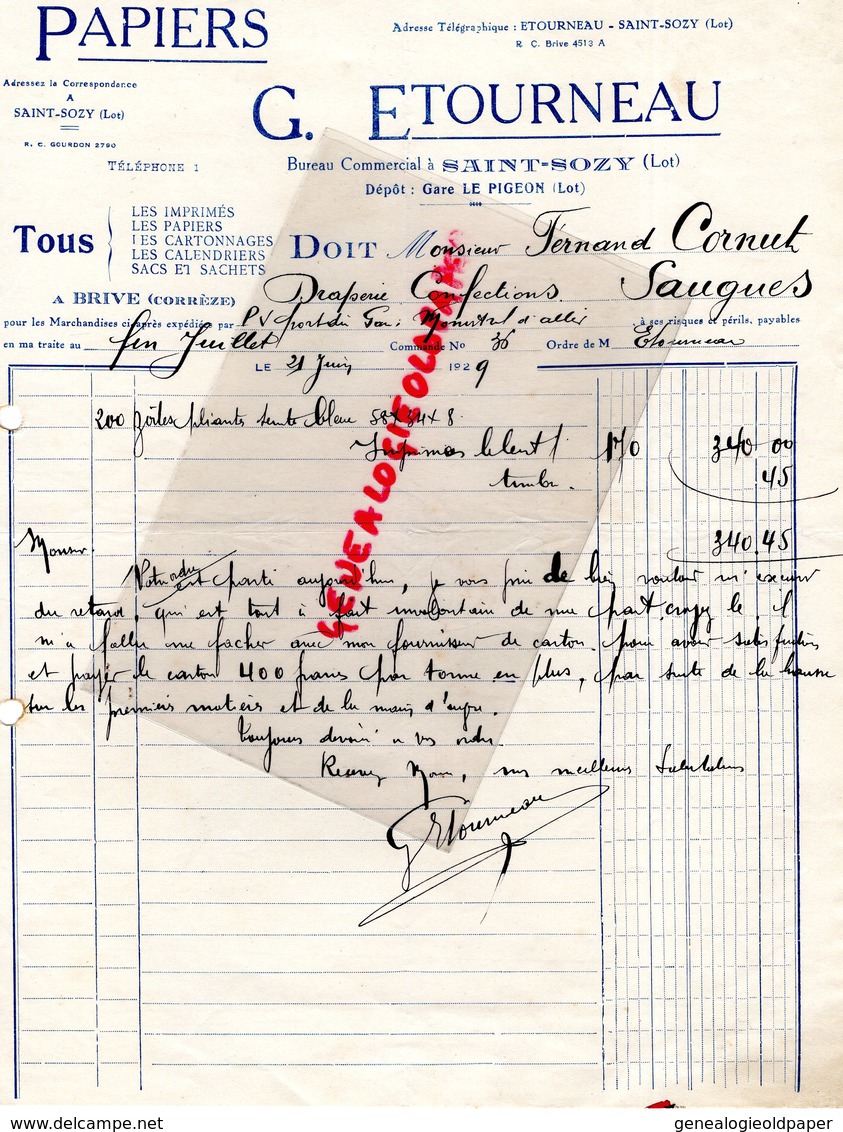 PAPIERS
Adresse Télégraphique : ETOURNEAU - SAINT-SOZY (Lot)
R. C. Brive 4513 A
Adressez la Correspondance
A
SAINT-SOZY (Lot)
R. C. GOURDON 2790
TÉLÉPHONE 1
G. ETOURNEAU
Bureau Commercial à SAINT-SOZY (Lot)
Dépôt : Gare LE PIGEON (Lot)
Tous
LES IMPRIMÉS
LES PAPIERS
LES CARTONNAGES
LES CALENDRIERS
SACS ET SACHETS
A BRIVE (CORRÈZE)
DOIT Monsieur Fernand Cornut
Draperie Confections Saugues
pour les Marchandises ci-après expédiées par P V port dû Monistrol d'allier à ses risques et périls, payables
en ma traite au fin Juillet Commande No 36 Ordre de M Etourneau
LE 21 Juin 1929
200 boîtes pliantes teinte bleue 58 x 34 x 8
Imprimées le cent 170 340 00
timbre. 45
340.45
Monsieur.
Votre ordre est parti aujourd'hui, je vous prie de bien vouloir m'excuser
du retard, qui est tout à fait involontaire de ma part, croyez le il
m'a fallu me facher avec mon fournisseur de carton pour avoir satisfaction
et payer le carton 400 francs par tonne en plus, par suite de la hausse
sur les premières matières et de la main d'œuvre.
Toujours dévoué à vos ordres
Recevez Monsieur, mes meilleures Salutations
G Etourneau
GENEALOGIEOLDPAPER
genealogieoldpaper